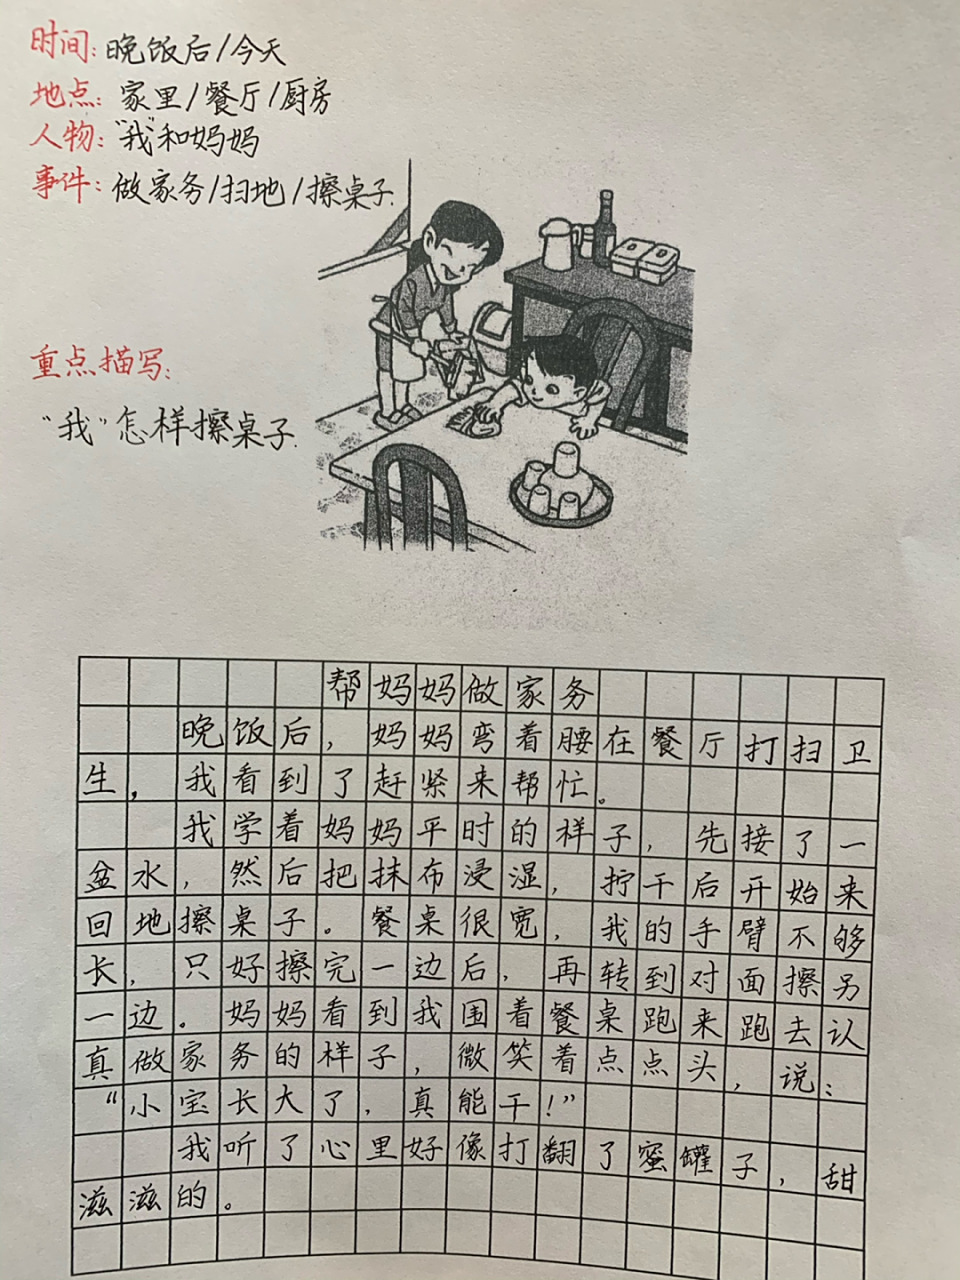 时间：晚饭后/今天
地点：家里/餐厅/厨房
人物：“我”和妈妈
事件：做家务/扫地/擦桌子.
重点描写：
“我”怎样擦桌子.
帮妈妈做家务
晚饭后，妈妈弯着腰在餐厅打扫卫
生，我看到了赶紧来帮忙。
我学着妈妈平时的样子，先接了一
盆水，然后把抹布浸湿，拧干后开始来
回地擦桌子。餐桌很宽，我的手臂不够
长，只好擦完一边后，再转到对面擦另
一边。妈妈看到我围着餐桌跑来跑去认
真做家务的样子，微笑着点点头，说：
“小宝长大了，真能干！”
我听了心里好像打翻了蜜罐子，甜
滋滋的。